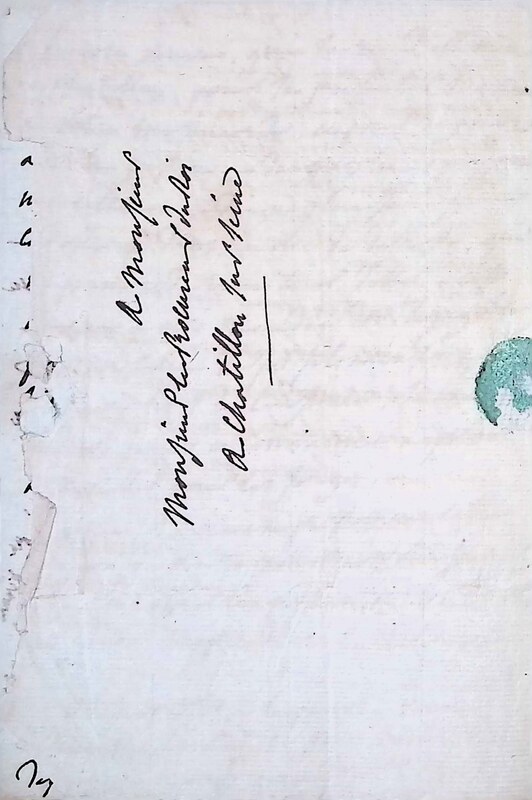 A Monsieur
Monsieur le Procureur du Roi
A Chatillon sur seine